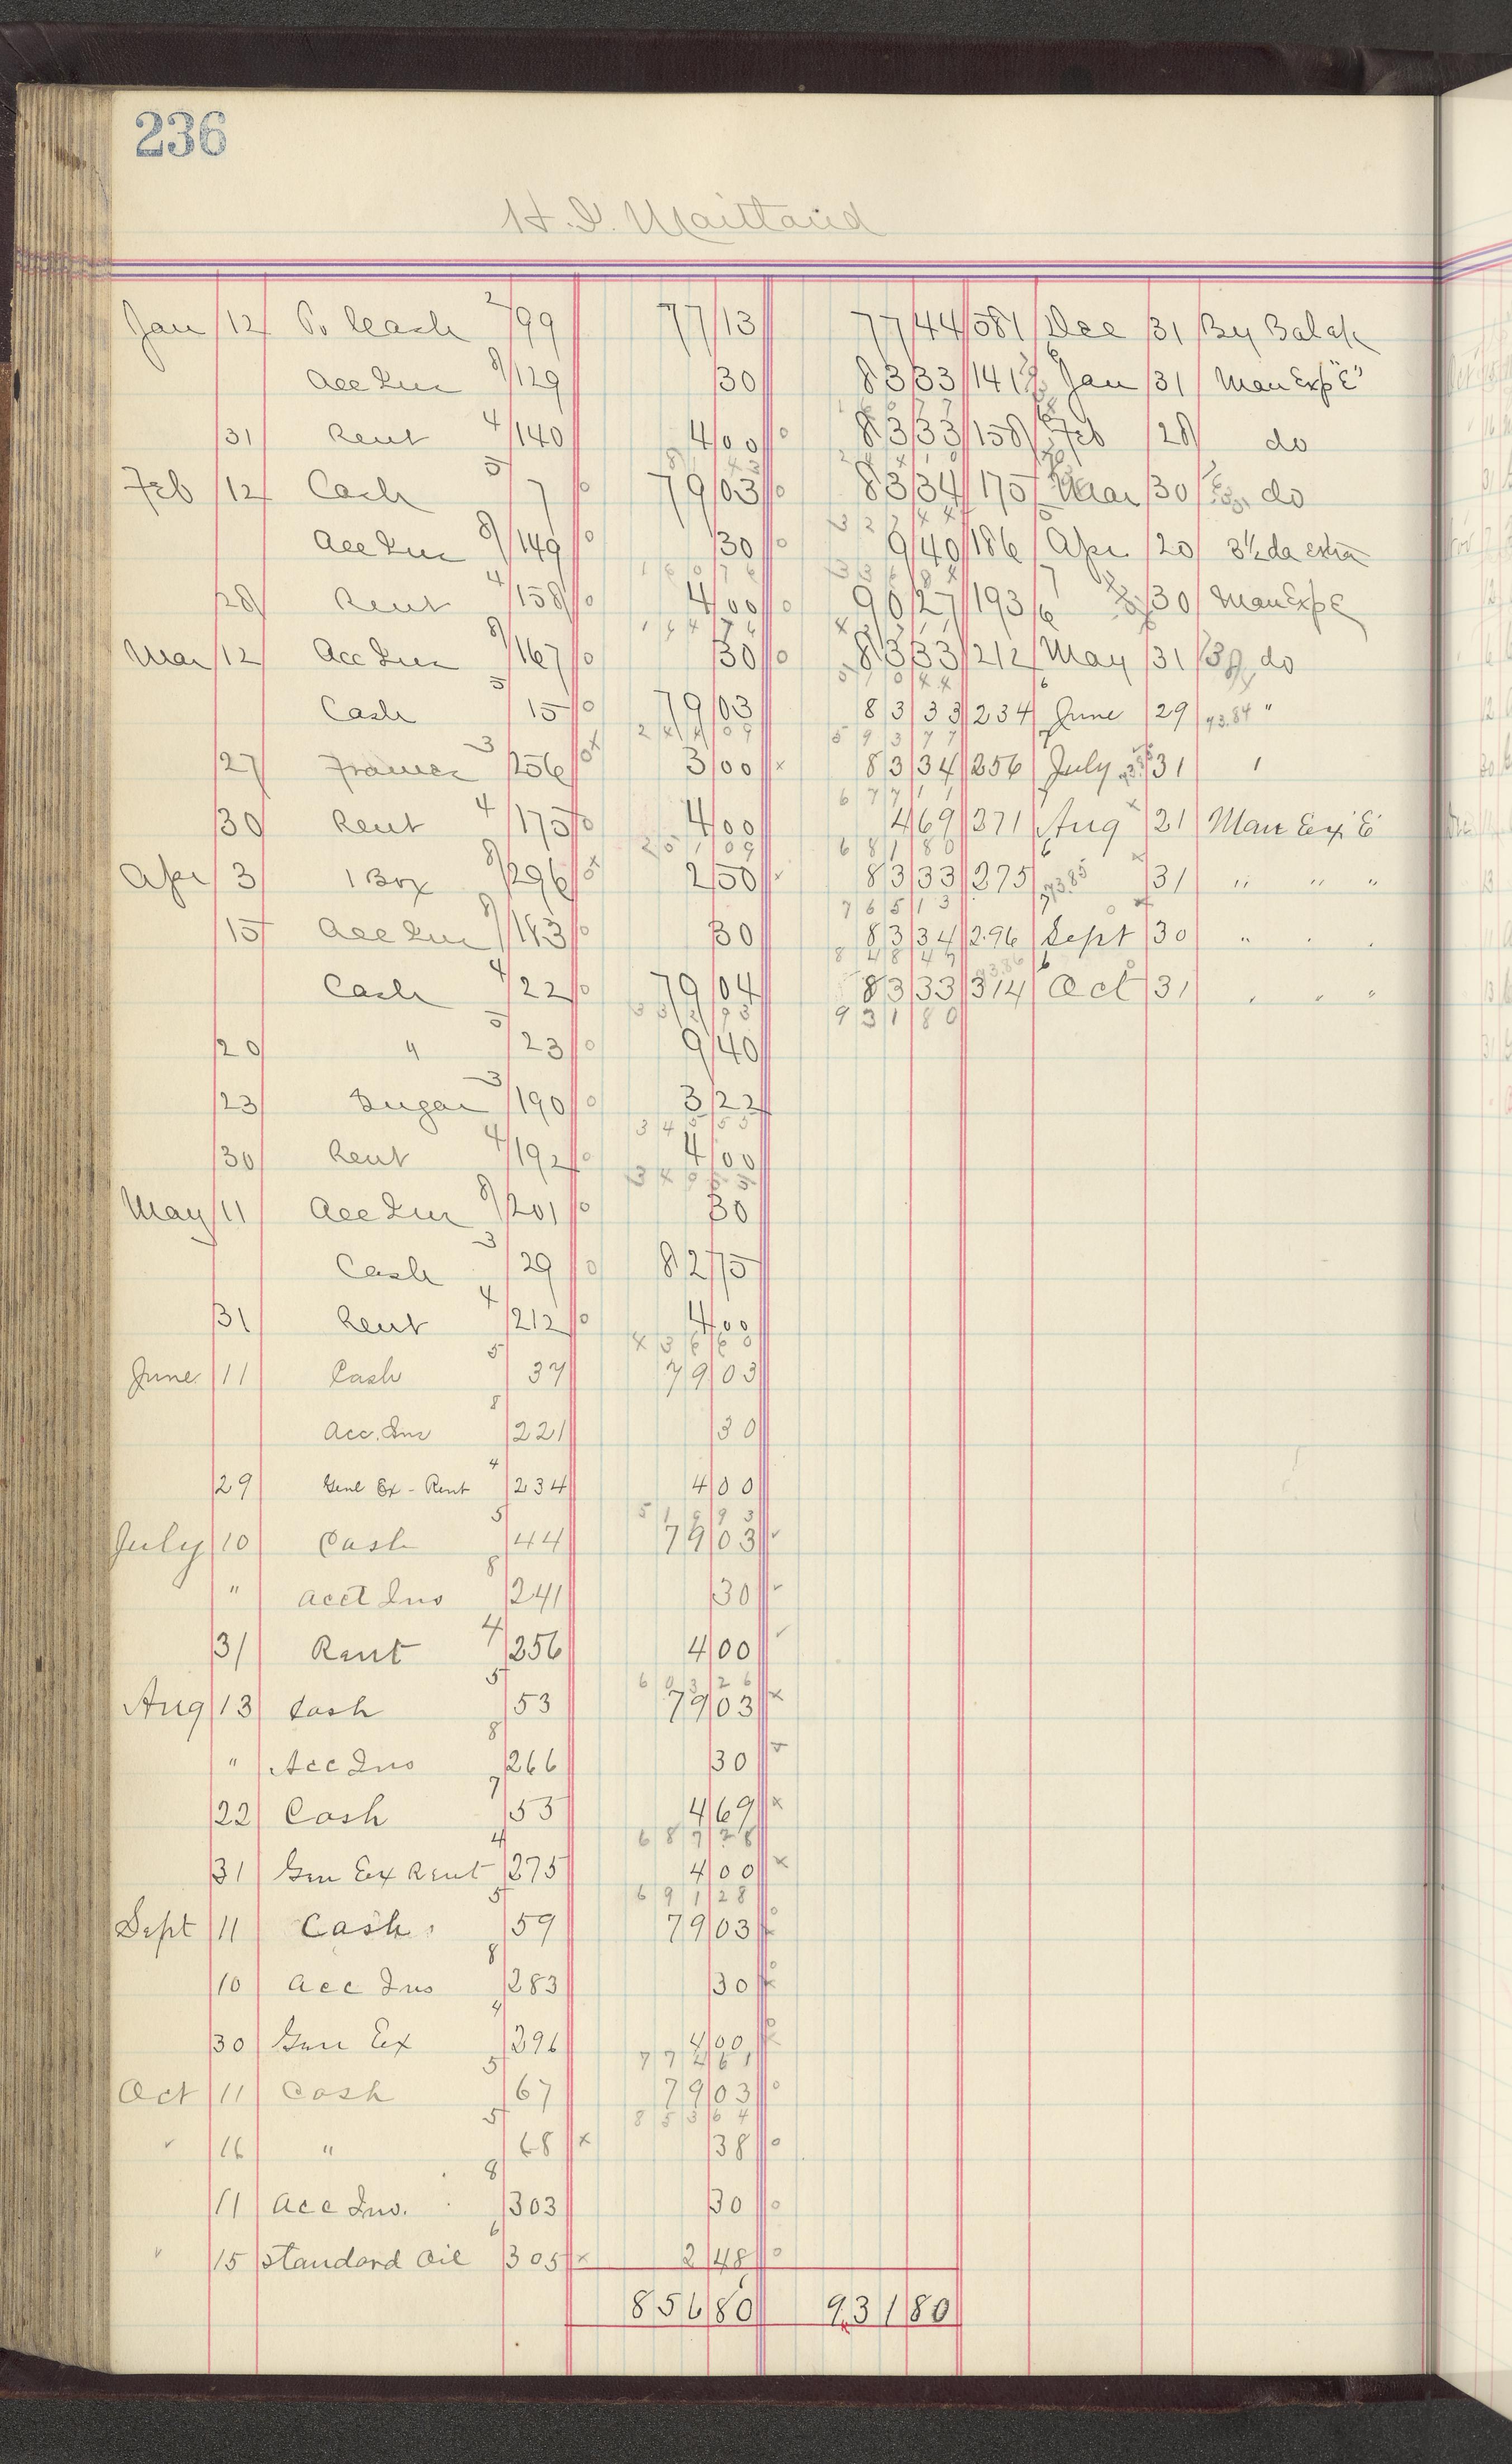 236
H. I. Maitland
Jan 12 To Cash 2/99 77 13 77 44 581 Dec 31 By Balak
Acc Ins 8/129 30 83 33 141 Jan 31 Man Exp "E"
31 Rent 4/140 4 00 83 33 158 Feb 28 do
Feb 12 Cash 5/7 79 03 83 34 175 Mar 30 do
Acc Ins 8/149 30 9 40 186 Apr 20 3½ da extra
28 Rent 4/158 4 00 90 27 193 30 Man Exp E
Mar 12 Acc Ins 8/167 30 83 33 212 May 31 do
Cash 5/15 79 03 83 33 234 June 29 73.84 "
27 Frames 3/256 3 00 83 34 256 July 31 "
30 Rent 4/175 4 00 4 69 271 Aug 21 Man Ex. E
Apr 3 1 Box 8/296 2 50 83 33 275 73.85 31 " " "
15 Acc Ins 8/183 30 83 34 296 Sept 30 " " "
Cash 4/22 79 04 83 33 314 Oct 31 " " "
931 80
20 " 5/23 9 40
23 Sugar 3/190 3 22
345 55
30 Rent 4/192 4 00
May 11 Acc Ins 8/201 30
Cash 3/29 82 75
31 Rent 4/212 4 00
436 60
June 11 Cash 5/37 79 03
Acc. Ins 8/221 30
29 Genl Ex - Rent 4/234 4 00
519 93
July 10 Cash 5/44 79 03
" Acct Ins 8/241 30
31 Rent 4/256 4 00
603 26
Aug 13 Cash 5/53 79 03
" Acc Ins 8/266 30
22 Cash 7/53 4 69
687 28
31 Gen Ex Rent 4/275 4 00
691 28
Sept 11 Cash 5/59 79 03
10 Acc Ins 8/283 30
30 Gen Ex 4/296 4 00
774 61
Oct 11 Cash 5/67 79 03
853 64
16 " 5/68 38
11 Acc Ins. 8/303 30
15 Standard Oil 6/305 2 48
856 80 931 80